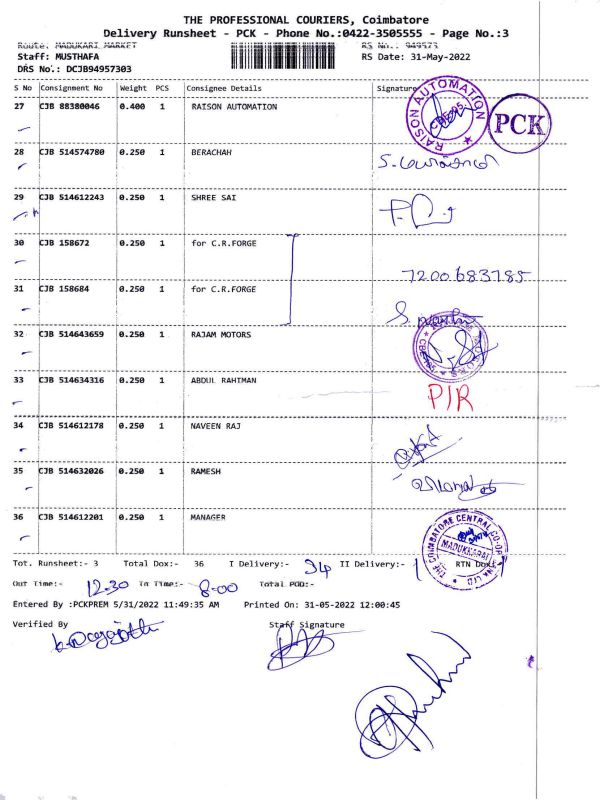 THE PROFESSIONAL COURIERS, Coimbatore
Delivery Runsheet - PCK - Phone No.:0422-3505555 - Page No.:3
Route: MADUKARI MARKET
RS No.: 949573
Staff: MUSTHAFA
RS Date: 31-May-2022
DRS No.: DCJB94957303
S No Consignment No Weight PCS Consignee Details Signature
27 CJB 88380046 0.400 1 RAISON AUTOMATION
RAISON AUTOMATION
PCK
28 CJB 514574780 0.250 1 BERACHAH
29 CJB 514612243 0.250 1 SHREE SAI
30 CJB 158672 0.250 1 for C.R.FORGE
7200683785
31 CJB 158684 0.250 1 for C.R.FORGE
32 CJB 514643659 0.250 1 RAJAM MOTORS
33 CJB 514634316 0.250 1 ABDUL RAHTMAN
P/R
34 CJB 514612178 0.250 1 NAVEEN RAJ
35 CJB 514632026 0.250 1 RAMESH
36 CJB 514612201 0.250 1 MANAGER
THE COIMBATORE CENTRAL CO-OP
MADUKKARAI
Tot. Runsheet:- 3 Total Dox:- 36 I Delivery:- 34 II Delivery:- 1 RTN Dox:-
Out Time:- 12-30 In Time:- 8-00 Total POD:-
Entered By :PCKPREM 5/31/2022 11:49:35 AM Printed On: 31-05-2022 12:00:45
Verified By Staff Signature